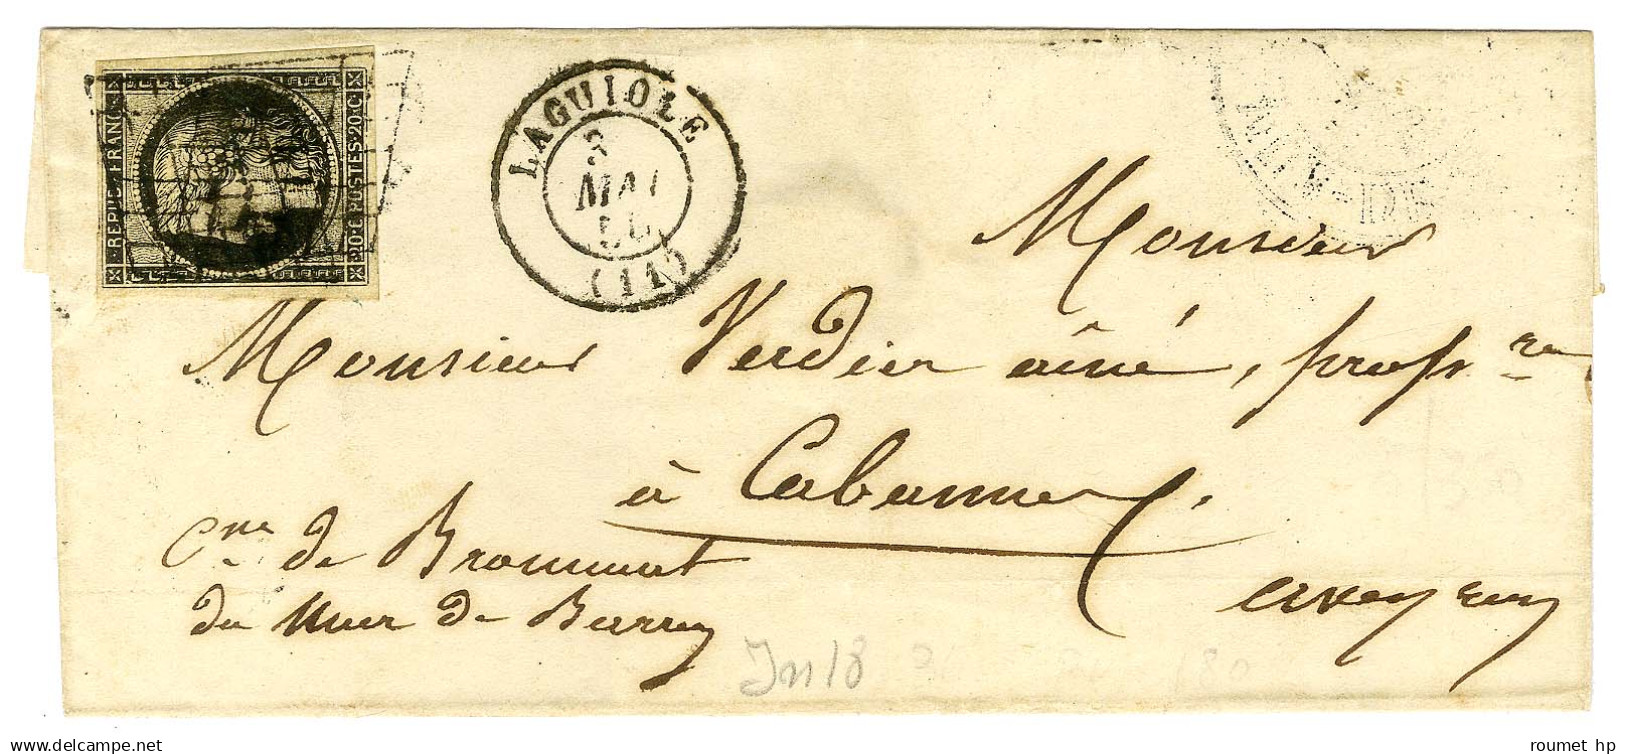 REPUB. FRANC.
20.C. POSTES.20.C.
LAGUIOLE
3
MAI
(11)
Monsieur
Monsieur Verdier aîné, propre
à Cabannes,
Cne de Brommat
du Mur de Barrez
aveyron
Jn 18
roumet hp